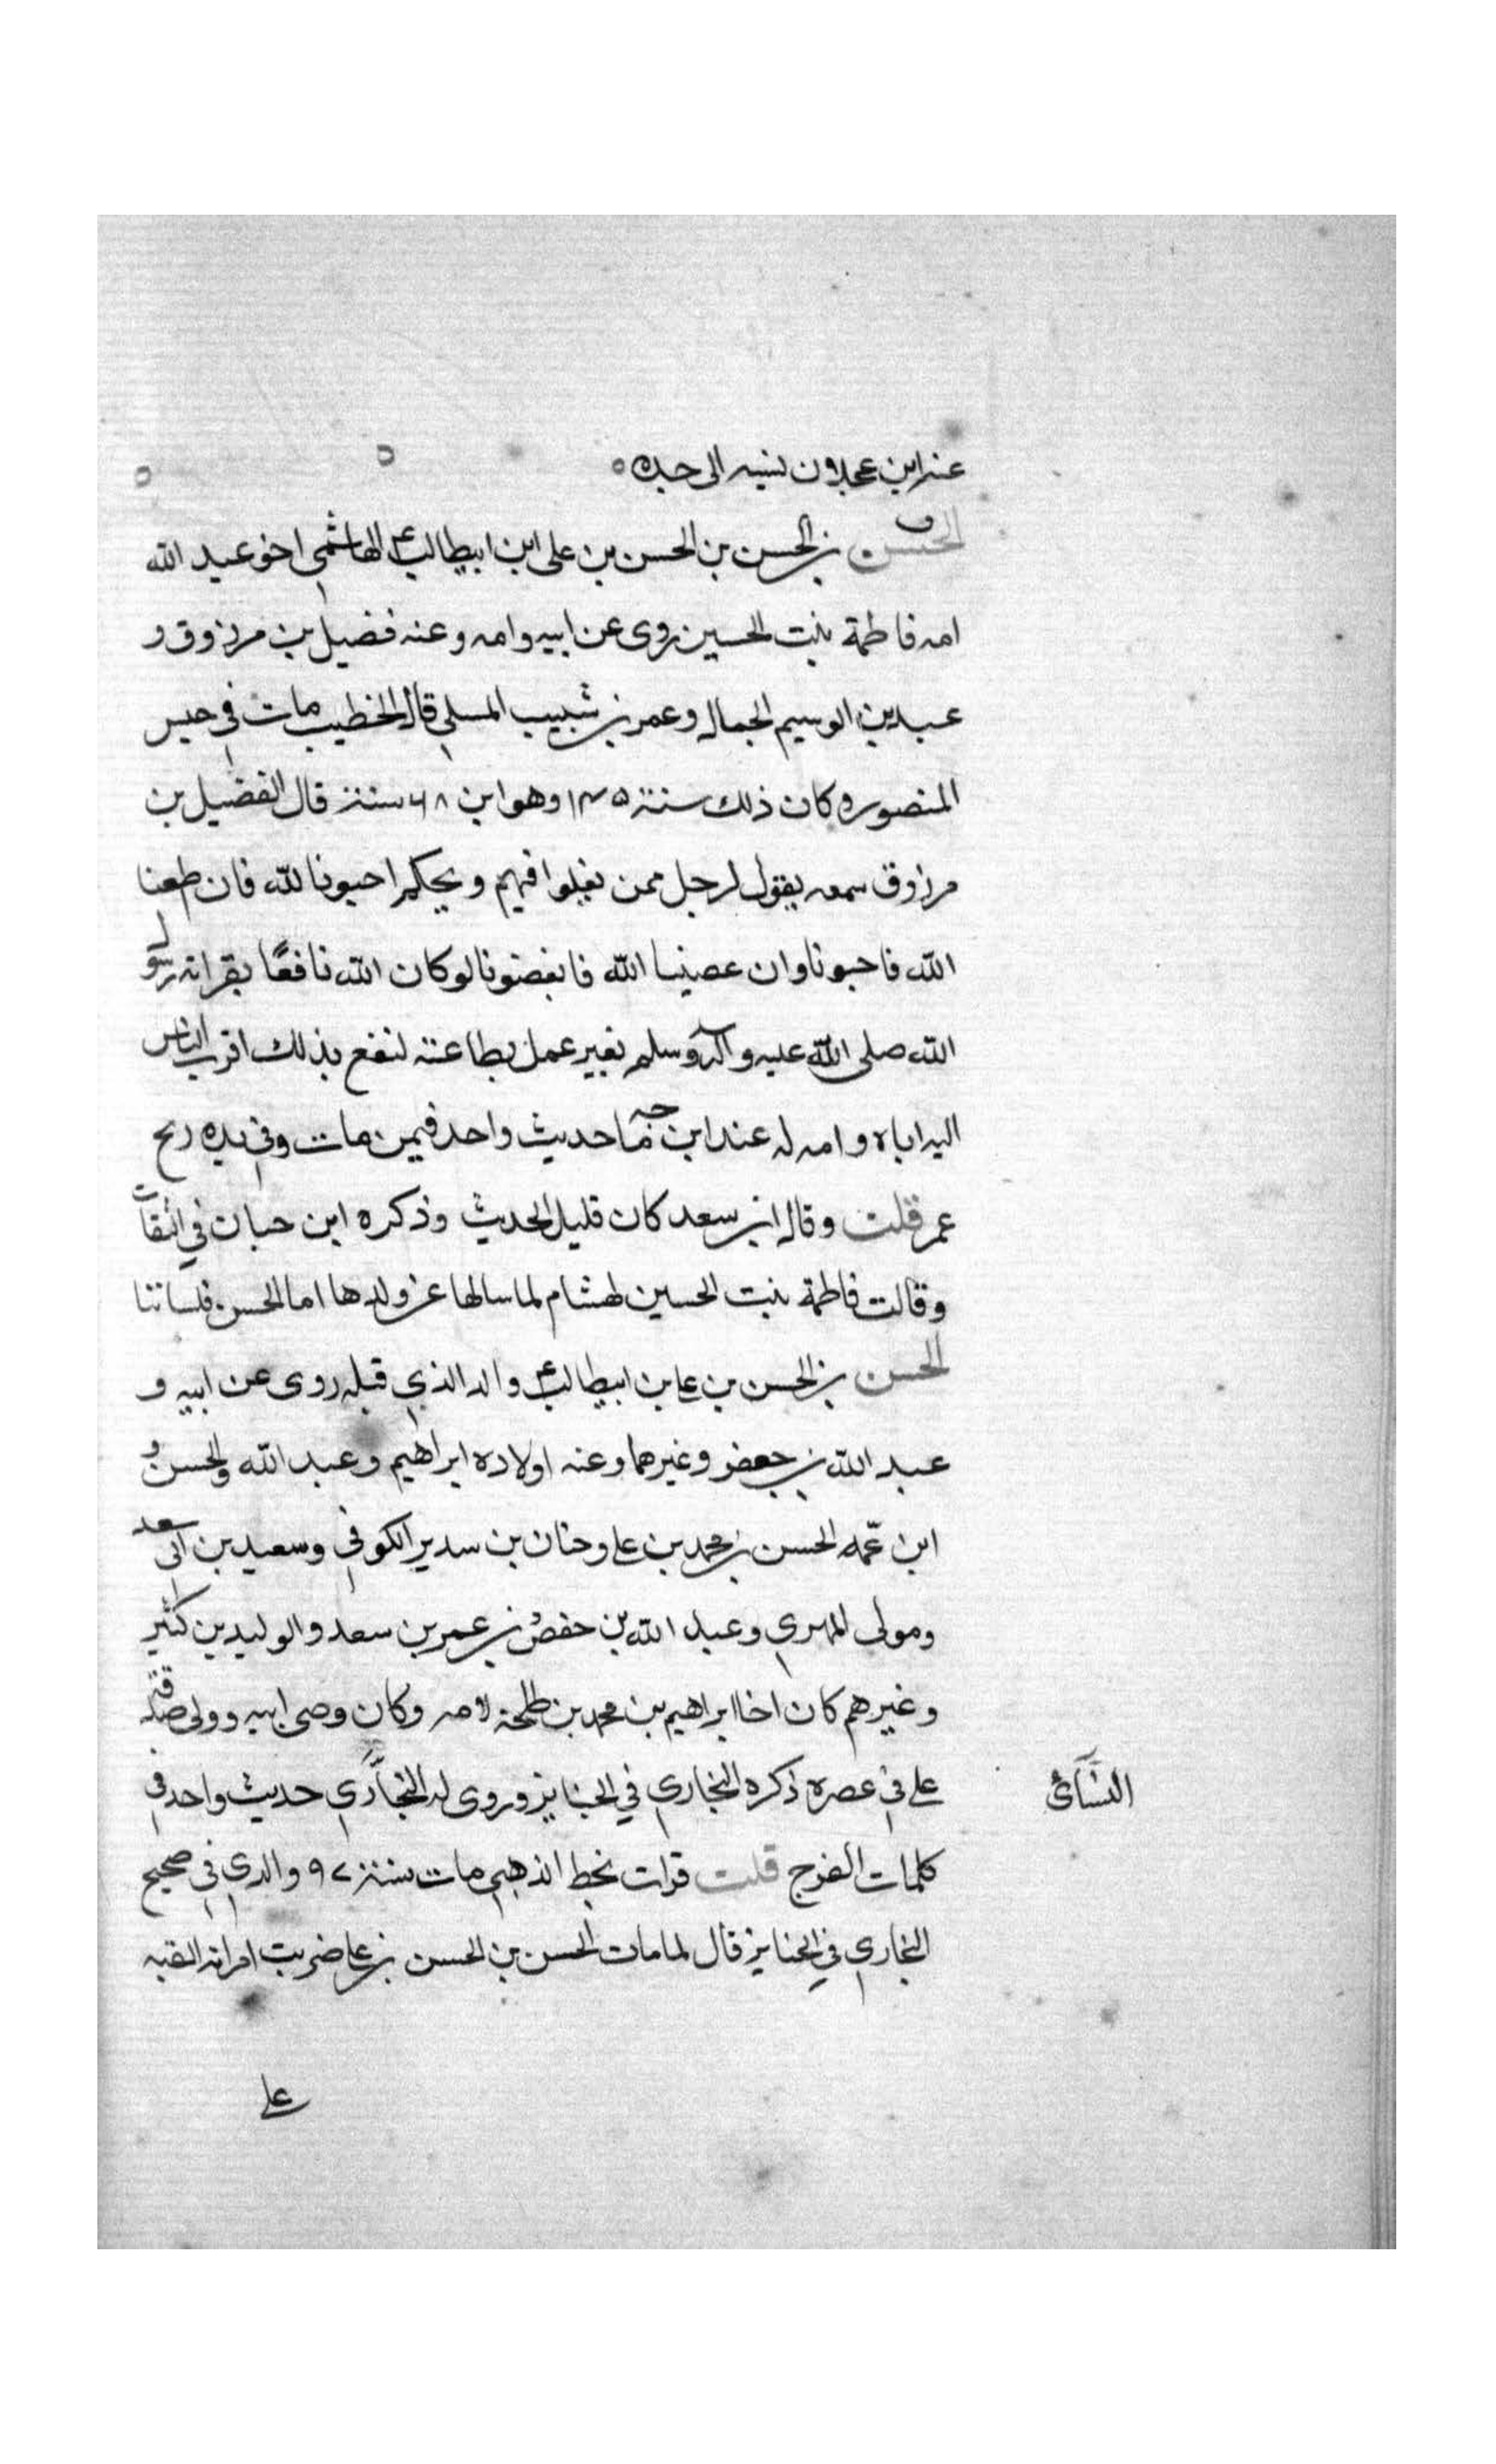 عند ابن عجلان نسبه الى جده
الحسن بن الحسن بن الحسن بن على ابن ابيطالب ع الهاشمي اخو عبد الله
امه فاطمة بنت الحسين روى عن ابيه وامه وعنه فضيل بن مرزوق و
عبيد بن الوسيم الجمال وعمر بن شبيب المسلي قال الخطيب مات في حبس
المنصور وكان ذلك سنة ١٤٥ وهو ابن ٦٨ سنة قال الفضيل بن
مرزوق سمعه يقول لرجل ممن يغلوا فيهم ويحكم احبونا لله فان طعنا
الله فاحبونا وان عصينا الله فابغضونا لو كان الله نافعًا بقرابة رسول
الله صلى الله عليه وآله وسلم بغير عمل بطاعته لنفع بذلك اقرب الناس
اليه اباه وامه له عند ابن ماجه حديث واحد فيمن مات وفي يده ريح
غمر قلت وقال ابن سعد كان قليل الحديث وذكره ابن حبان في الثقات
وقالت فاطمة بنت الحسين لهشام لما سالها عن ولدها اما الحسن فلساننا
الحسن بن الحسن بن علي بن ابيطالب ع والد الذي قبله روى عن ابيه و
عبد الله بن جعفر وغيرهما وعنه اولاده ابراهيم وعبد الله والحسن و
ابن عمه الحسن بن محمد بن علي وحنان بن سدير الكوفي وسعيد بن ابى سعد
ومولى المهري وعبد الله بن حفص بن عمر بن سعد والوليد بن كثير
وغيرهم كان اخا ابراهيم بن محمد بن طلحة لامه وكان وصي ابيه وولى صدقة
علي في عصره ذكره البخاري في الجنايز وروى له البخاري حديث واحد في
النسائى
كلمات الفرج قلت قرات بخط الذهبي مات سنة ٩٧ والدي في صحيح
البخاري في الجنايز قال لما مات الحسن بن الحسن بن علي ضربت امراته القبه
علي